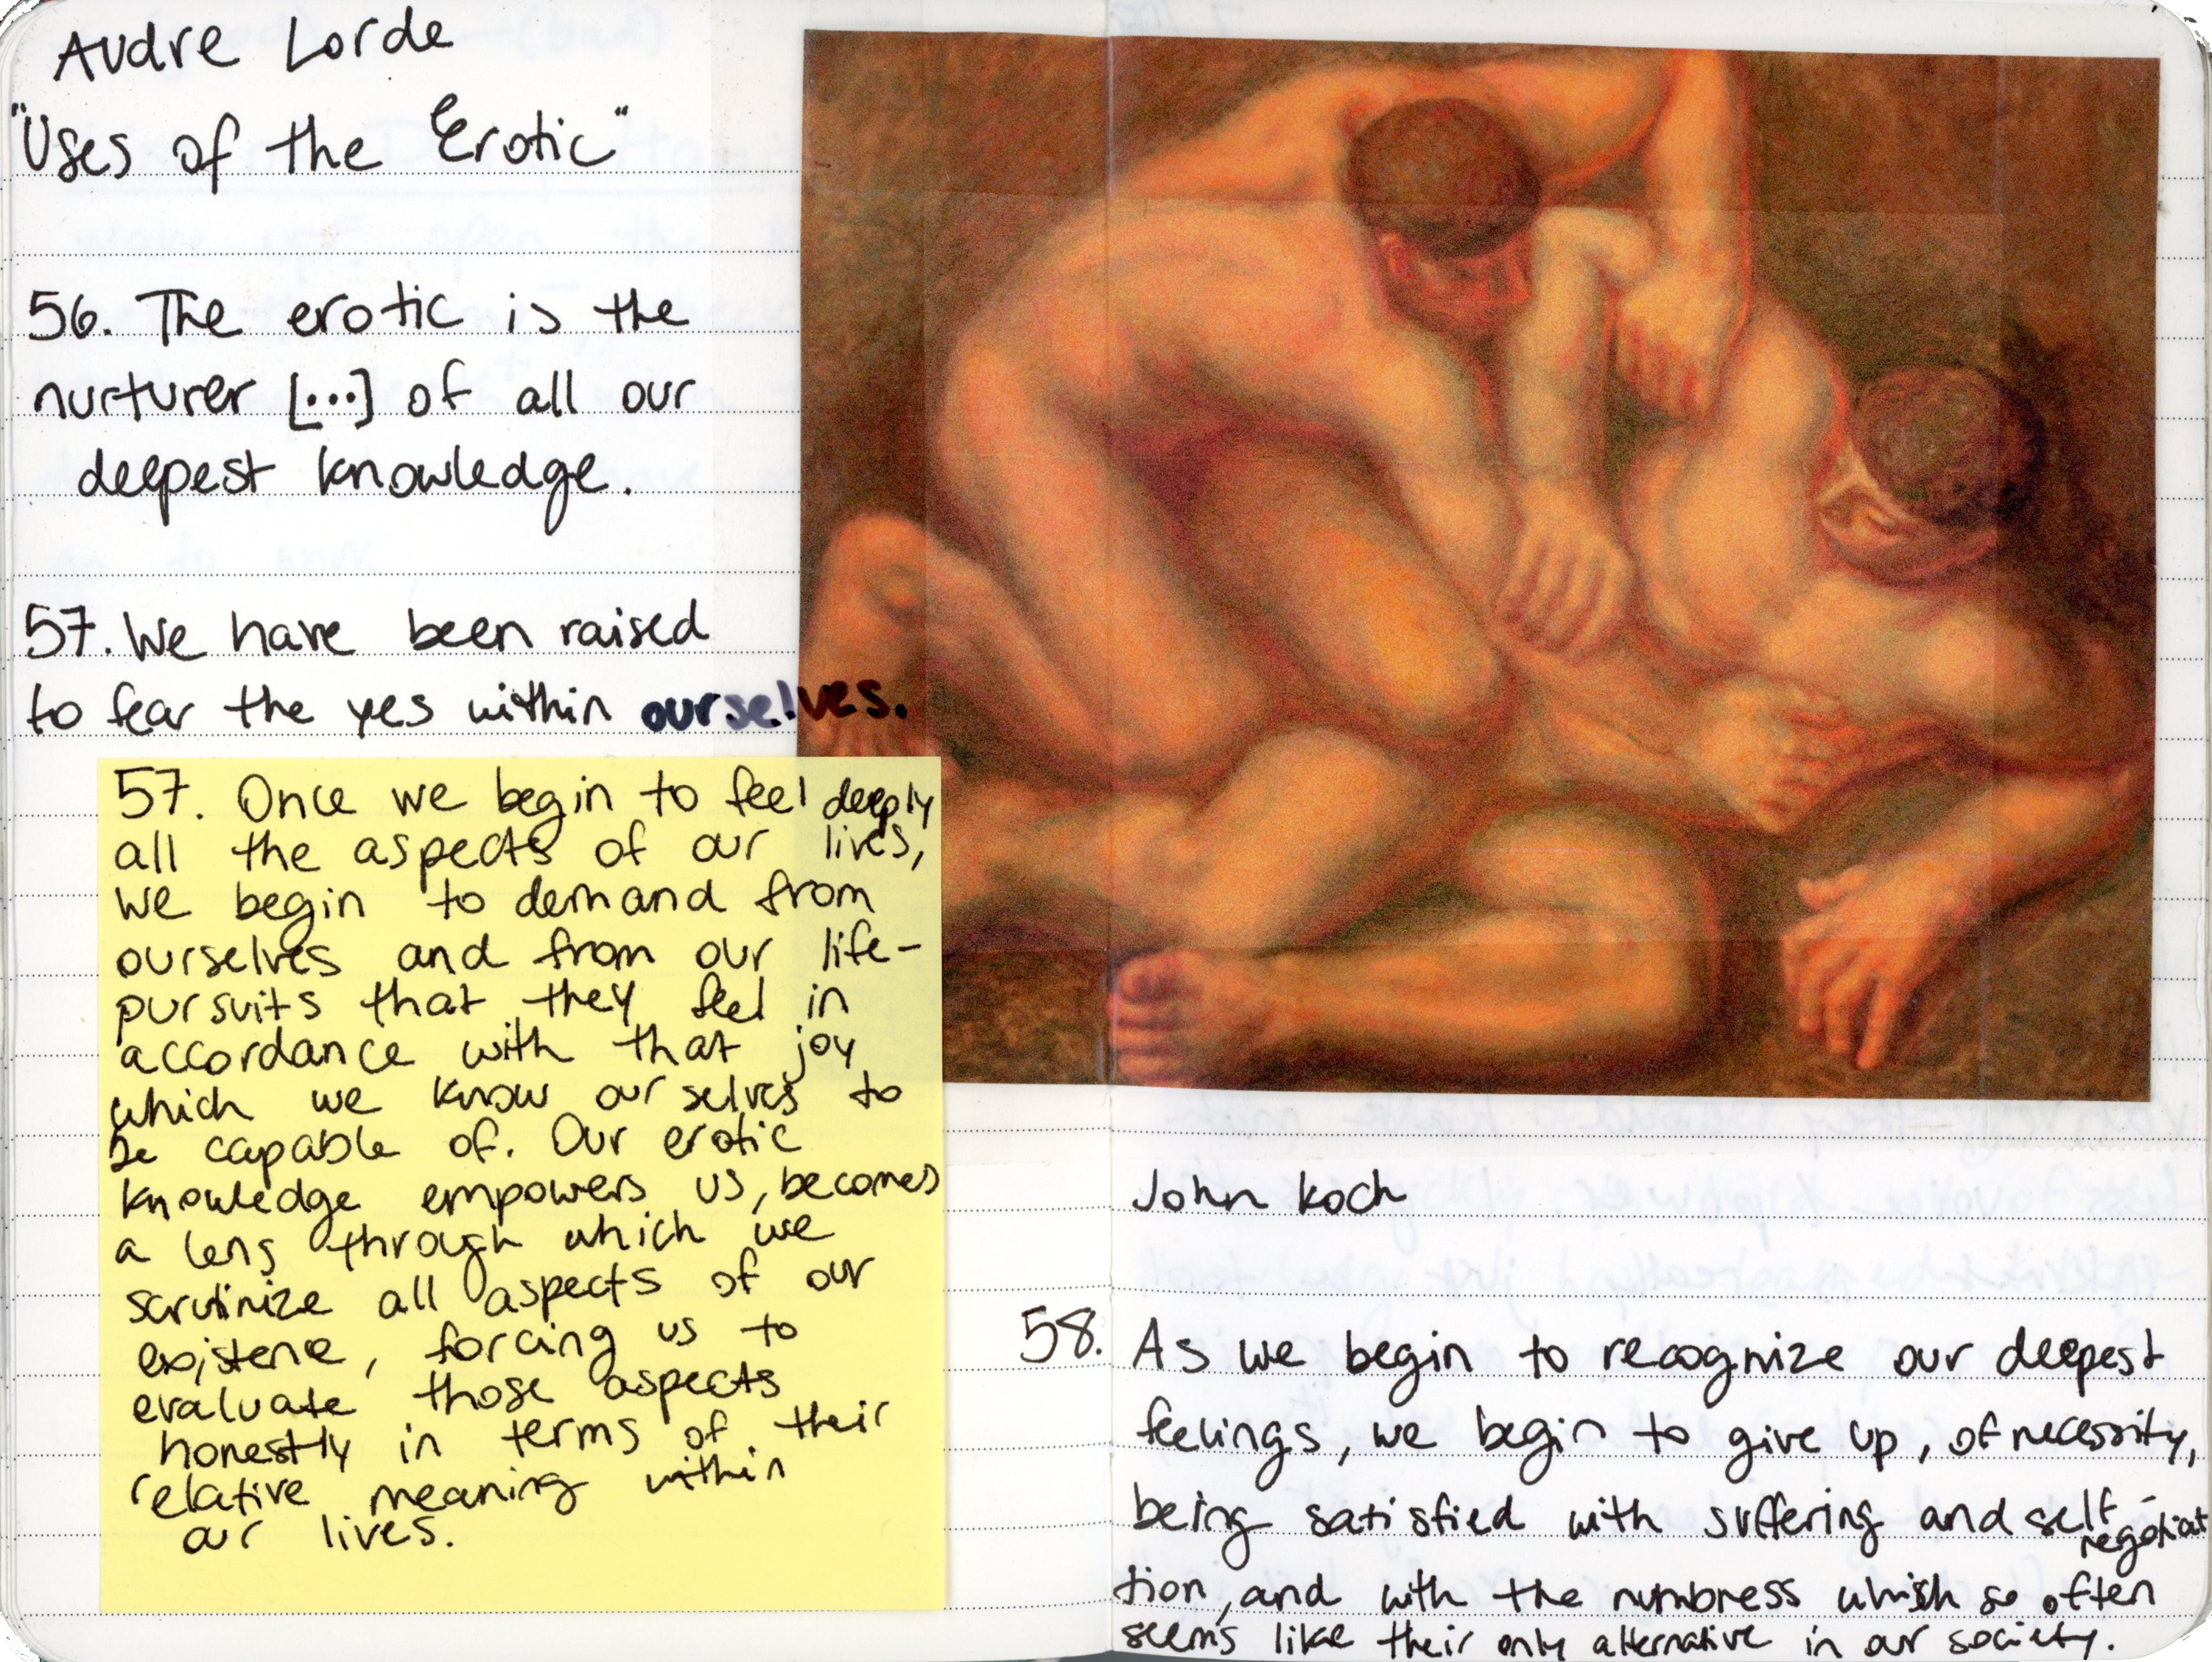 Audre Lorde
"Uses of the Erotic"
56. The erotic is the
nurturer [...] of all our
deepest knowledge.
57. We have been raised
to fear the yes within ourselves.
57. Once we begin to feel deeply
all the aspects of our lives,
we begin to demand from
ourselves and from our life-
pursuits that they feel in
accordance with that joy
which we know ourselves to
be capable of. Our erotic
knowledge empowers us, becomes
a lens through which we
scrutinize all aspects of our
existence, forcing us to
evaluate those aspects
honestly in terms of their
relative meaning within
our lives.
John Koch
58. As we begin to recognize our deepest
feelings, we begin to give up, of necessity,
being satisfied with suffering and self-
tion, and with the numbness which so often
seems like their only alternative in our society.